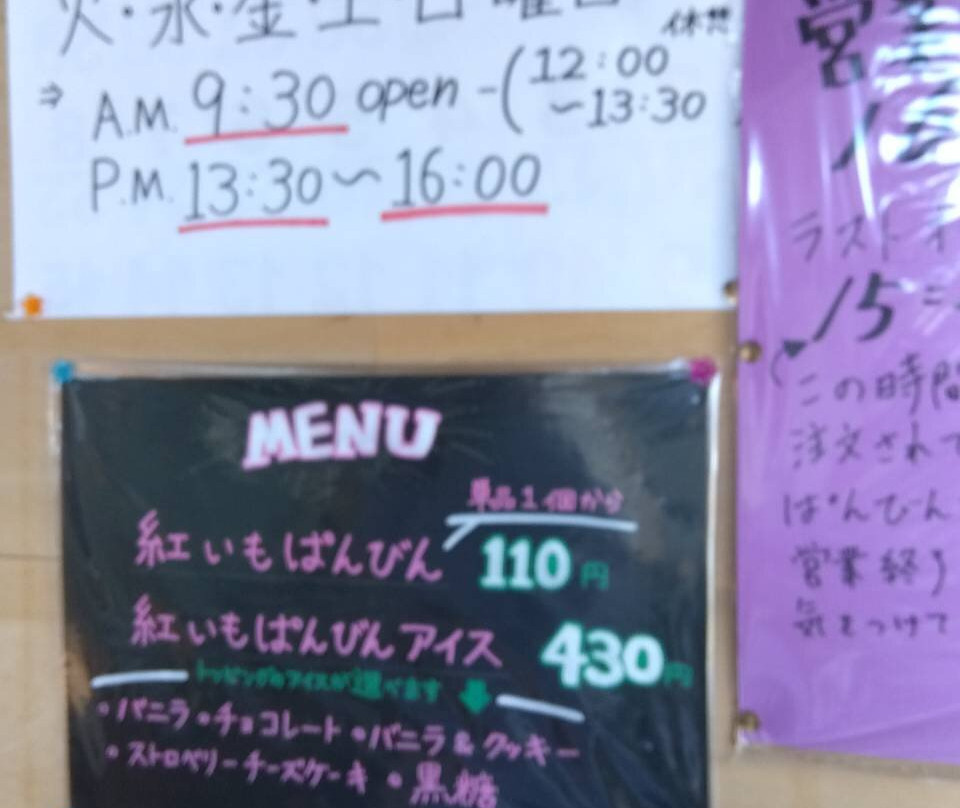 火・水・金・土・日曜日
休憩
⇒ A.M. 9:30 open -(12:00
~13:30
P.M. 13:30~16:00
MENU
単品1個から
紅いもぱんびん 110円
紅いもぱんびんアイス 430円
トッピングのアイスが選べます
・バニラ・チョコレート・バニラ&クッキー
・ストロベリーチーズケーキ・黒糖
営
ラスト
15
この時間
注文されて
ぱんびん
営業終り
気をつけて